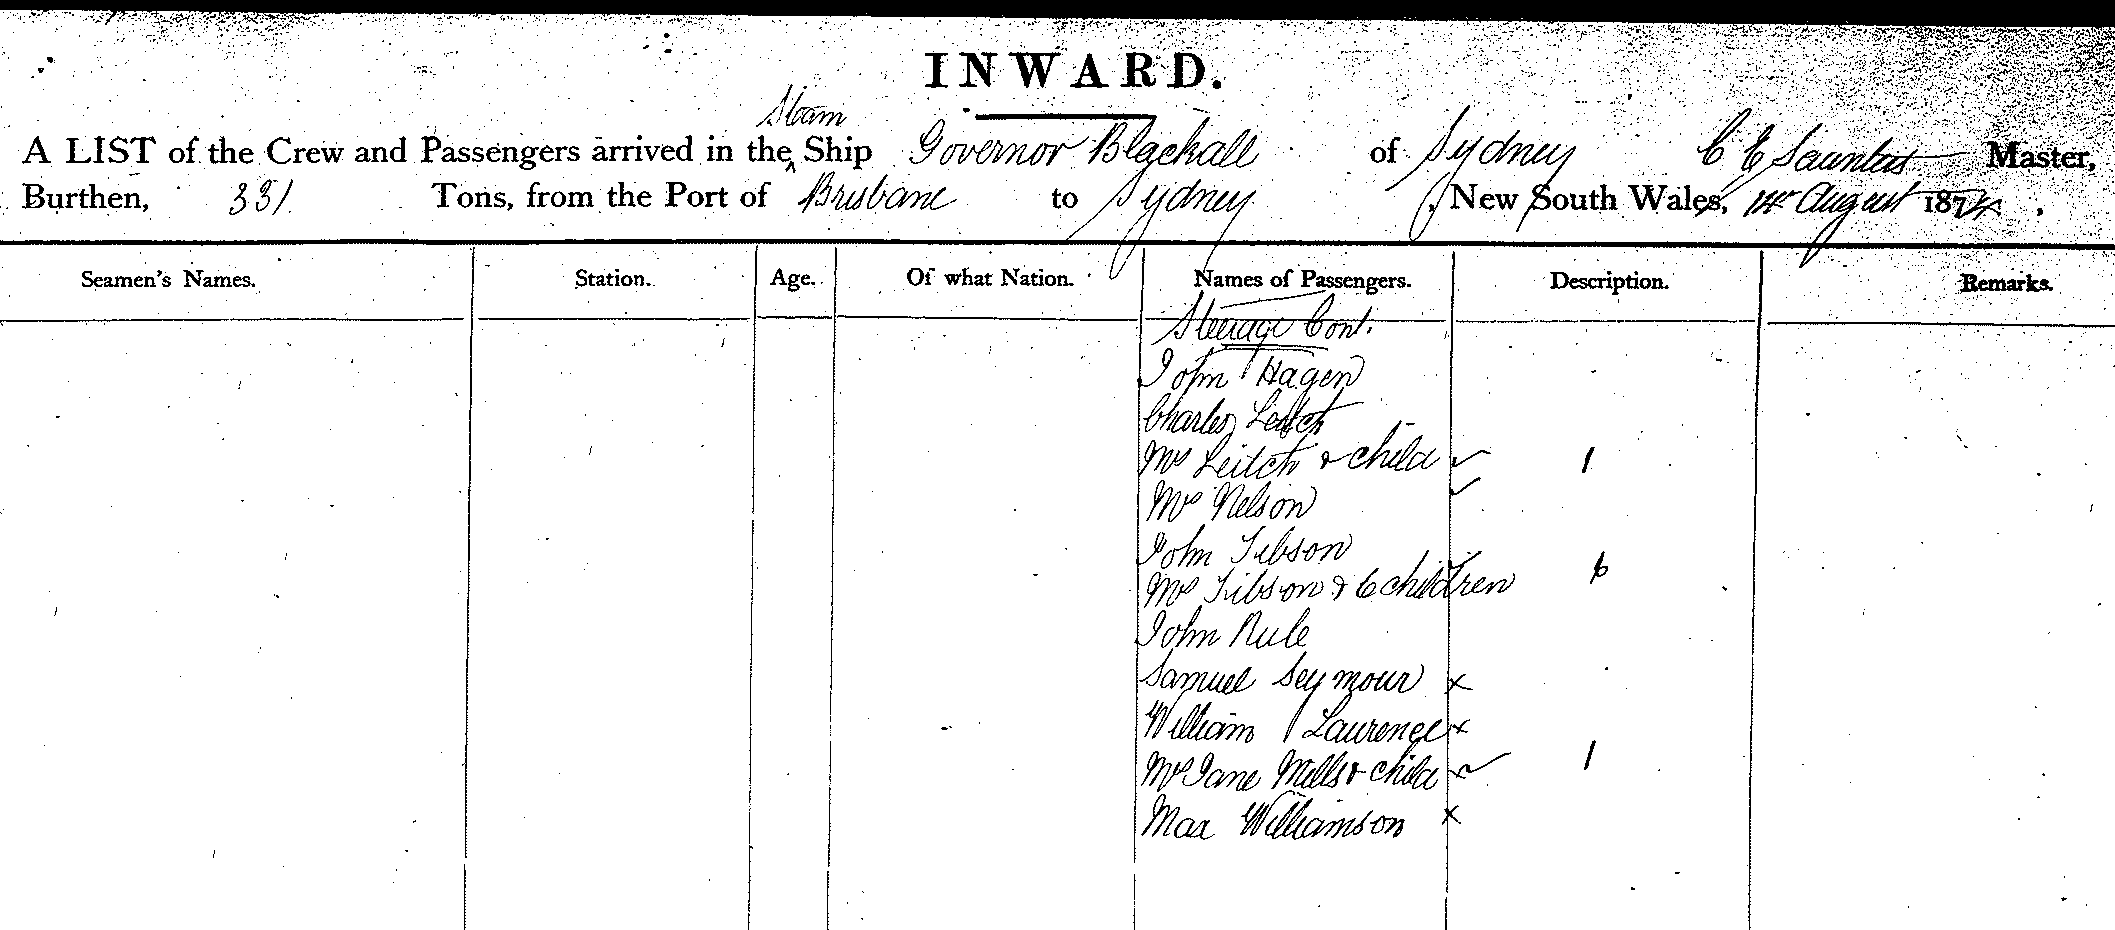 INWARD.
Steam
A LIST of the Crew and Passengers arrived in the ^ Ship Governor Blackall of Sydney C E Saunders Master,
Burthen, 331 Tons, from the Port of Brisbane to Sydney, New South Wales, August 1874.
Seamen's Names. Station. Age. Of what Nation. Names of Passengers. Description. Remarks.
Steerage Cont.
John Hagen
Charles Leitch
Mrs Leitch & child ✓ 1
Mrs Nelson ✓
John Tibson
Mrs Tibson & 6 children 6
John Rule
Samuel Seymour x
William Laurence x
Mrs Jane Mills & child ✓ 1
Max Williamson x